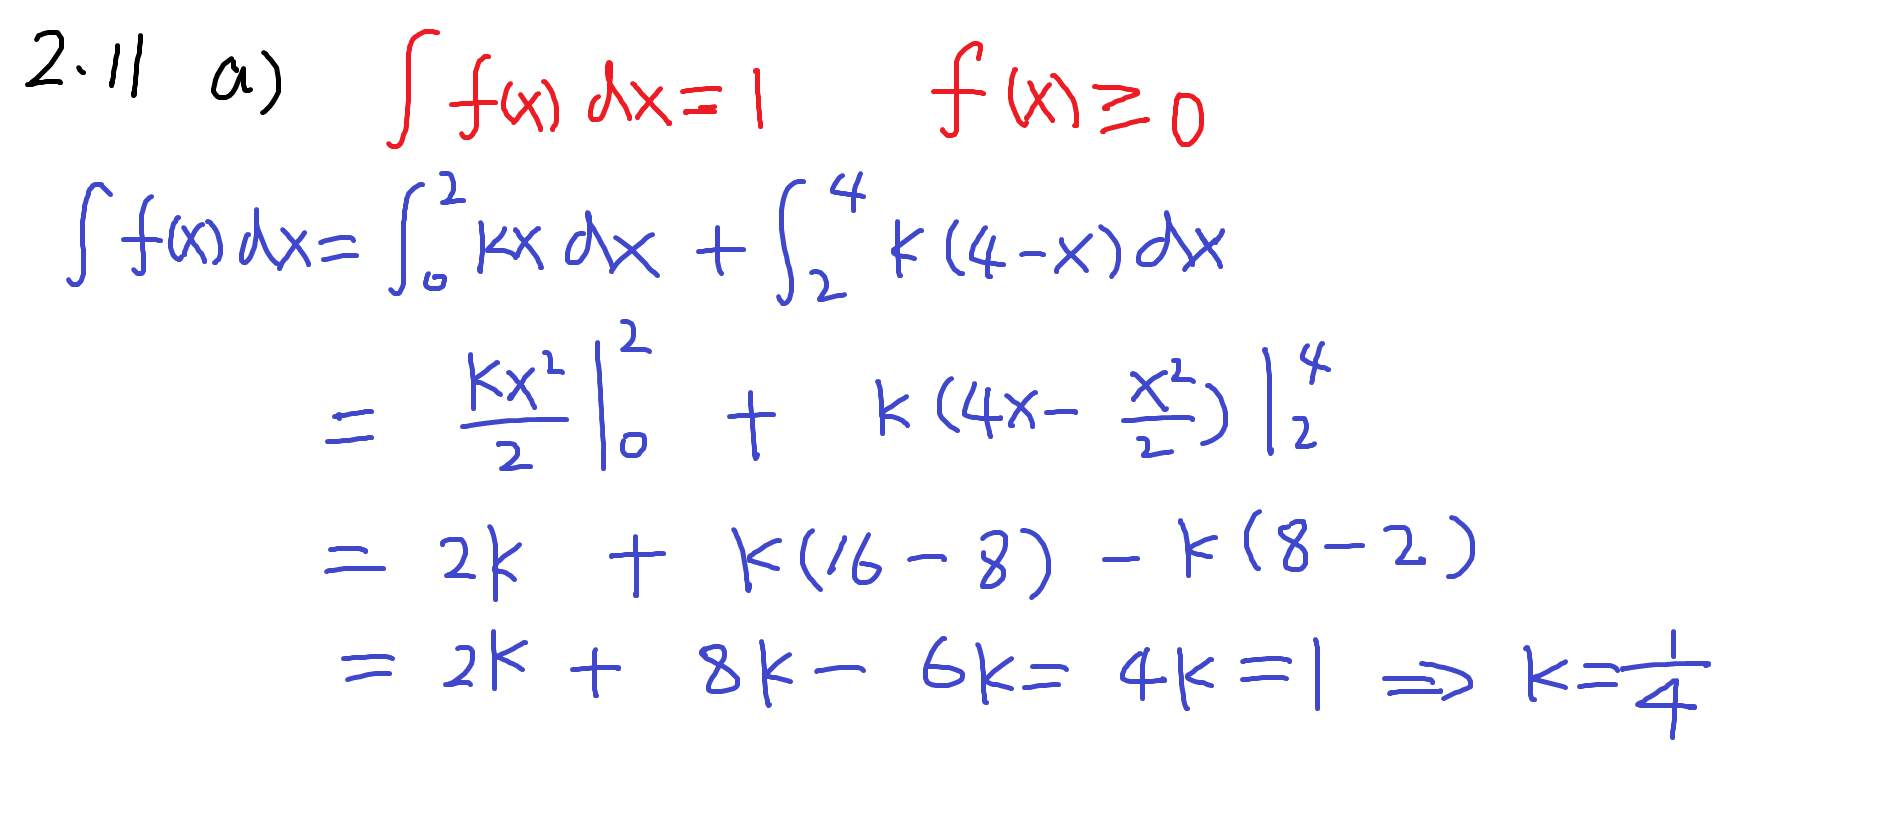 2.11 a) ∫ f(x) dx = 1 f(x) ≥ 0
∫ f(x) dx = ∫₀² kx dx + ∫₂⁴ k(4-x) dx
= kx²/2 |₀² + k(4x - x²/2) |₂⁴
= 2k + k(16 - 8) - k(8 - 2)
= 2k + 8k - 6k = 4k = 1 ⇒ k = 1/4